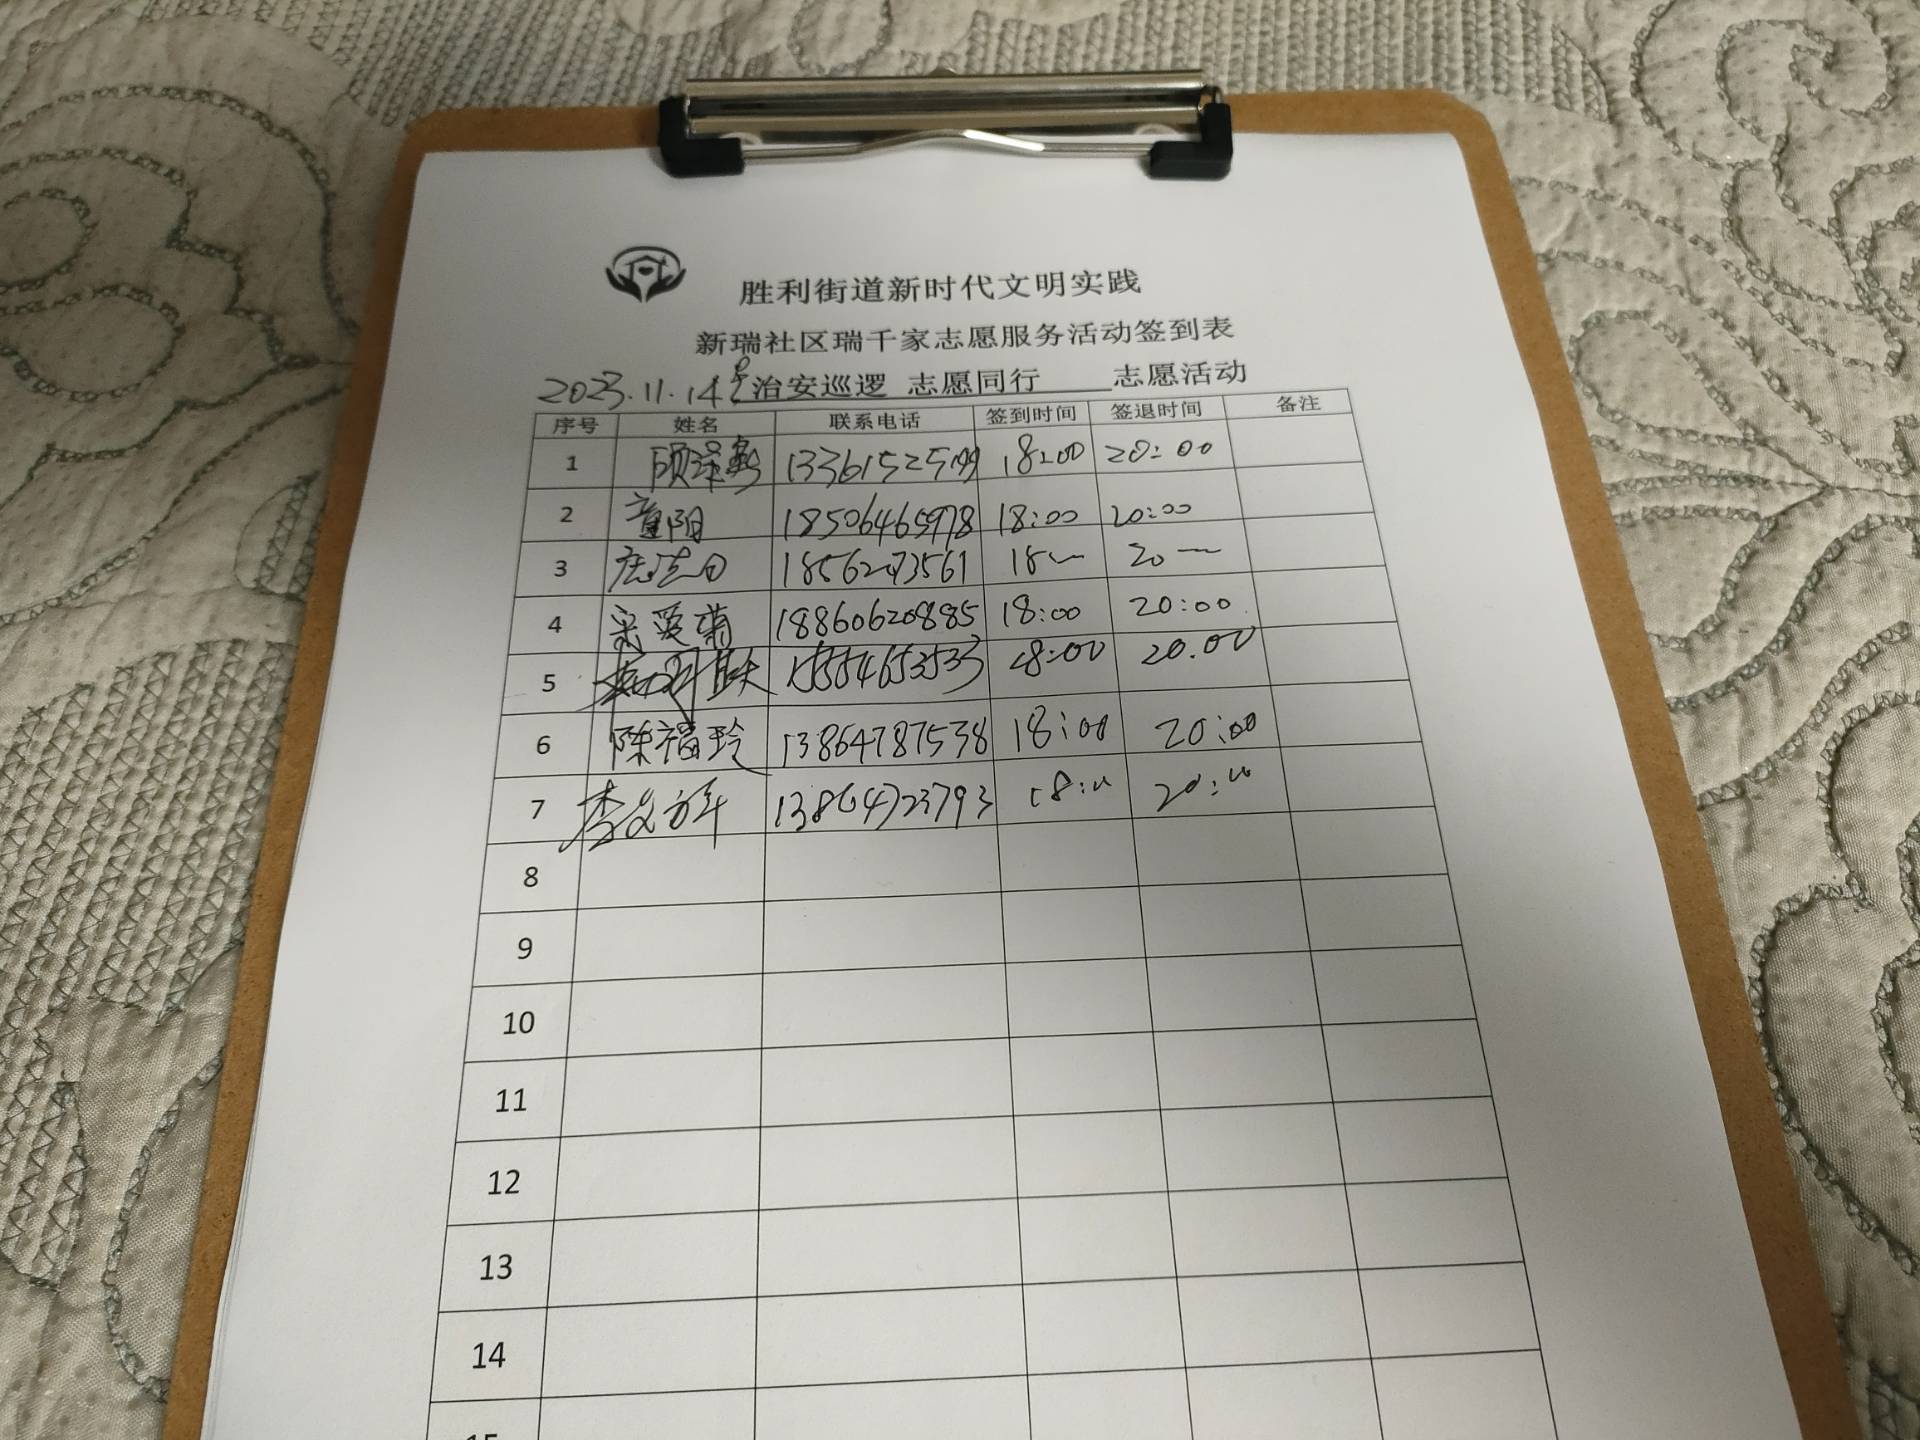 胜利街道新时代文明实践
新瑞社区瑞千家志愿服务活动签到表
2023.11.14号 治安巡逻 志愿同行 志愿活动
序号 姓名 联系电话 签到时间 签退时间 备注
1 顾泽 18:00 20:00
2 阳 18506465978 18:00 20:00
3 18562073561 18 20
4 爱菊 18860620885 18:00 20:00
5 18:00 20.00
6 陈福玲 13864787538 18:00 20:00
7 李文 13864723793 18: 20:
8
9
10
11
12
13
14
15